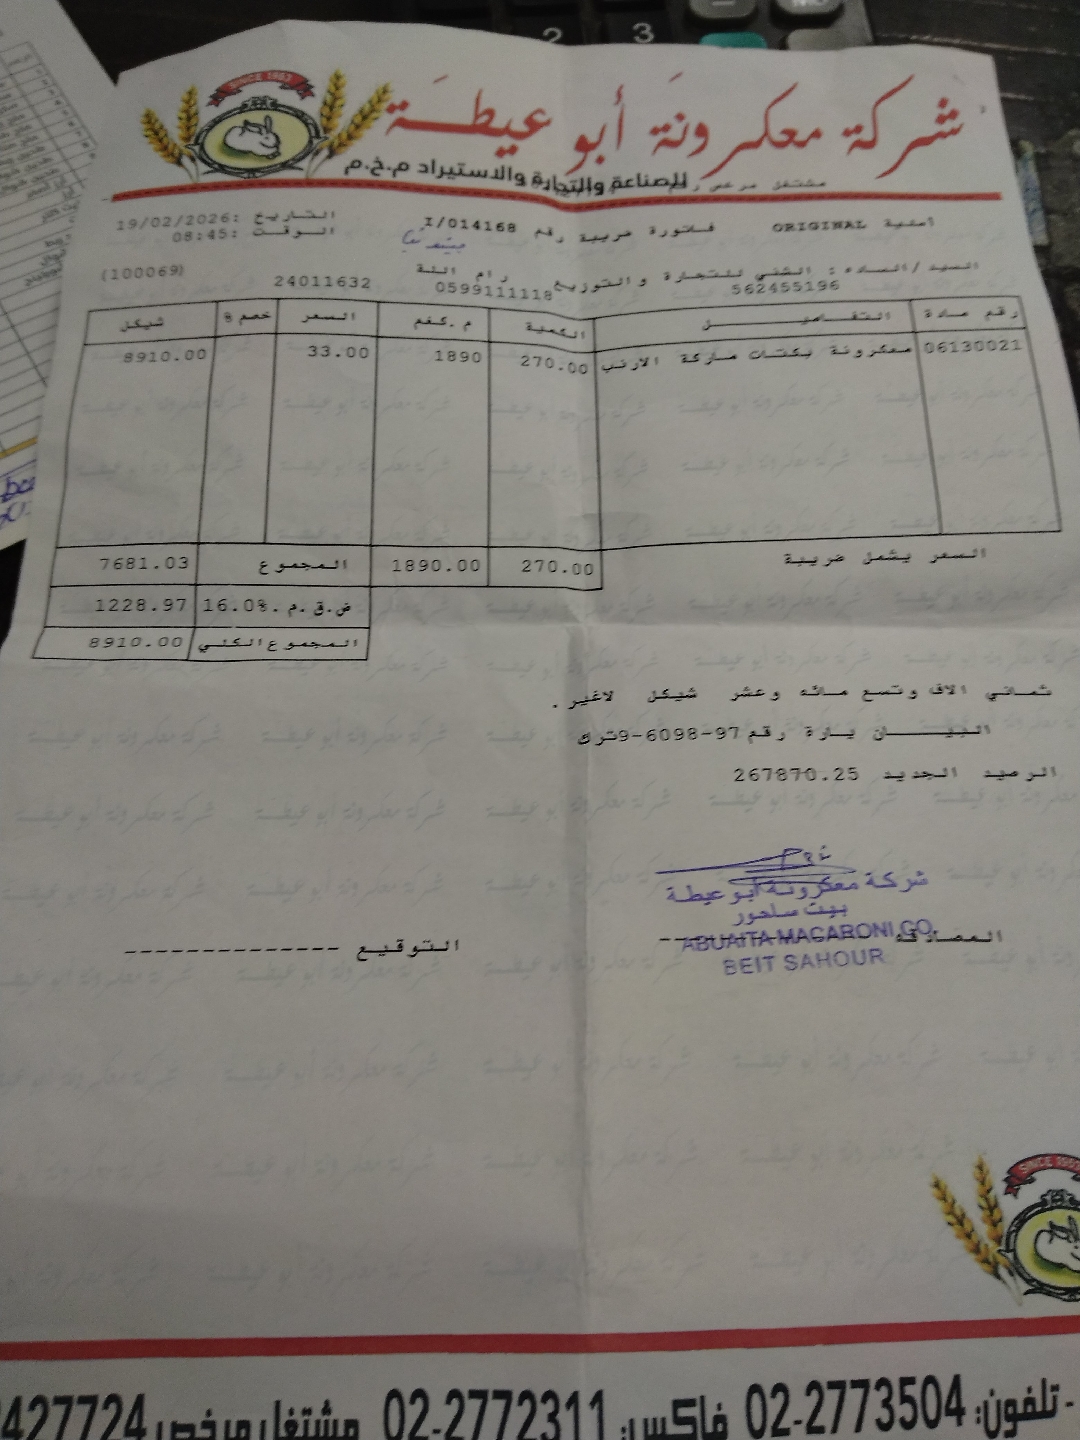 2 3
SINCE 1957
شركة معكرونة أبو عيطة
للصناعة والتجارة والاستيراد م.خ.م
مشتغل مرخص رقم
اصلية ORIGINAL فاتورة ضريبة رقم I/014168 التاريخ :19/02/2026
الوقت :08:45
السيد/السادة : الشني للتجارة والتوزيع رام اللة (100069)
562455196 0599111118 24011632
رقم مادة التفاصيل الكمية م.كغم السعر خصم % شيكل
06130021 معكرونة بكتات ماركة الارنب 270.00 1890 33.00 8910.00
السعر يشمل ضريبة 270.00 1890.00 المجموع 7681.03
ض.ق.م .16.0% 1228.97
المجموع الكلي 8910.00
ثماني الاف وتسع مائه وعشر شيكل لاغير .
البيان يارة رقم 97-6098-9ترك
الرصيد الجديد 267870.25
شركة معكرونة أبو عيطة
بيت ساحور
المصادقه ---------- التوقيع --------------
ABUAITA MACARONI CO
BEIT SAHOUR
SINCE 1957
- تلفون: 02-2773504 فاكس: 02-2772311 مشتغل مرخص 427724